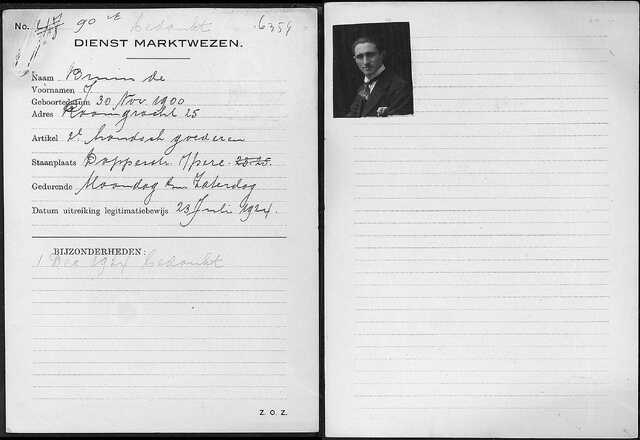 No. 90 bedankt 6359
DIENST MARKTWEZEN.
Naam Bruin de
Voornamen J
Geboortedatum 30 Nov. 1900
Adres Roomgracht 25
Artikel 2e handsch goederen
Staanplaats Dapperstr. 1/pere 25-25.
Gedurende Maandag t/m Zaterdag
Datum uitreiking legitimatiebewijs 23 Juli 1924.
BIJZONDERHEDEN:
1 Dec 1924 bedankt
Z. O. Z.